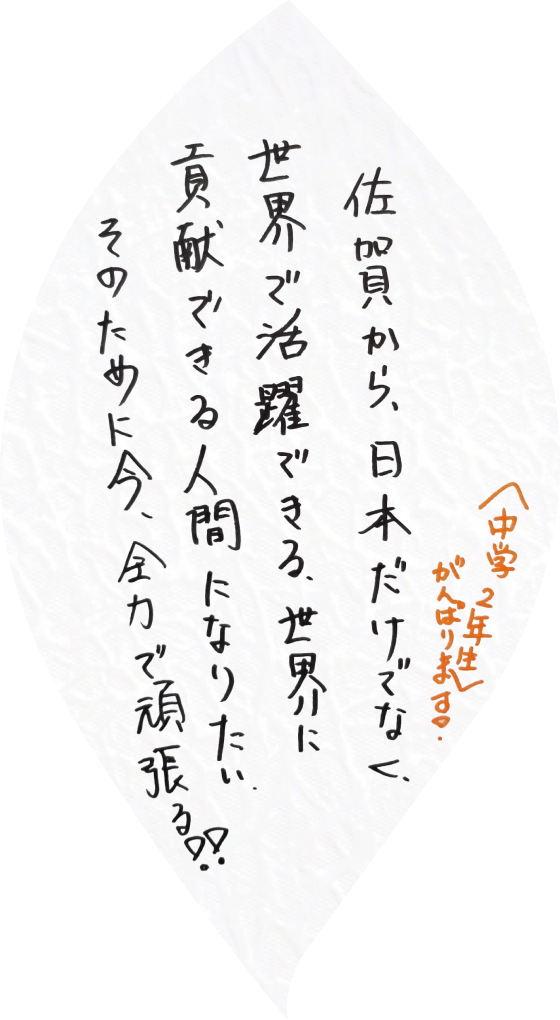 〈中学2年生〉
がんばります!
佐賀から、日本だけでなく、
世界で活躍できる、世界に
貢献できる人間になりたい。
そのために今、全力で頑張る!!